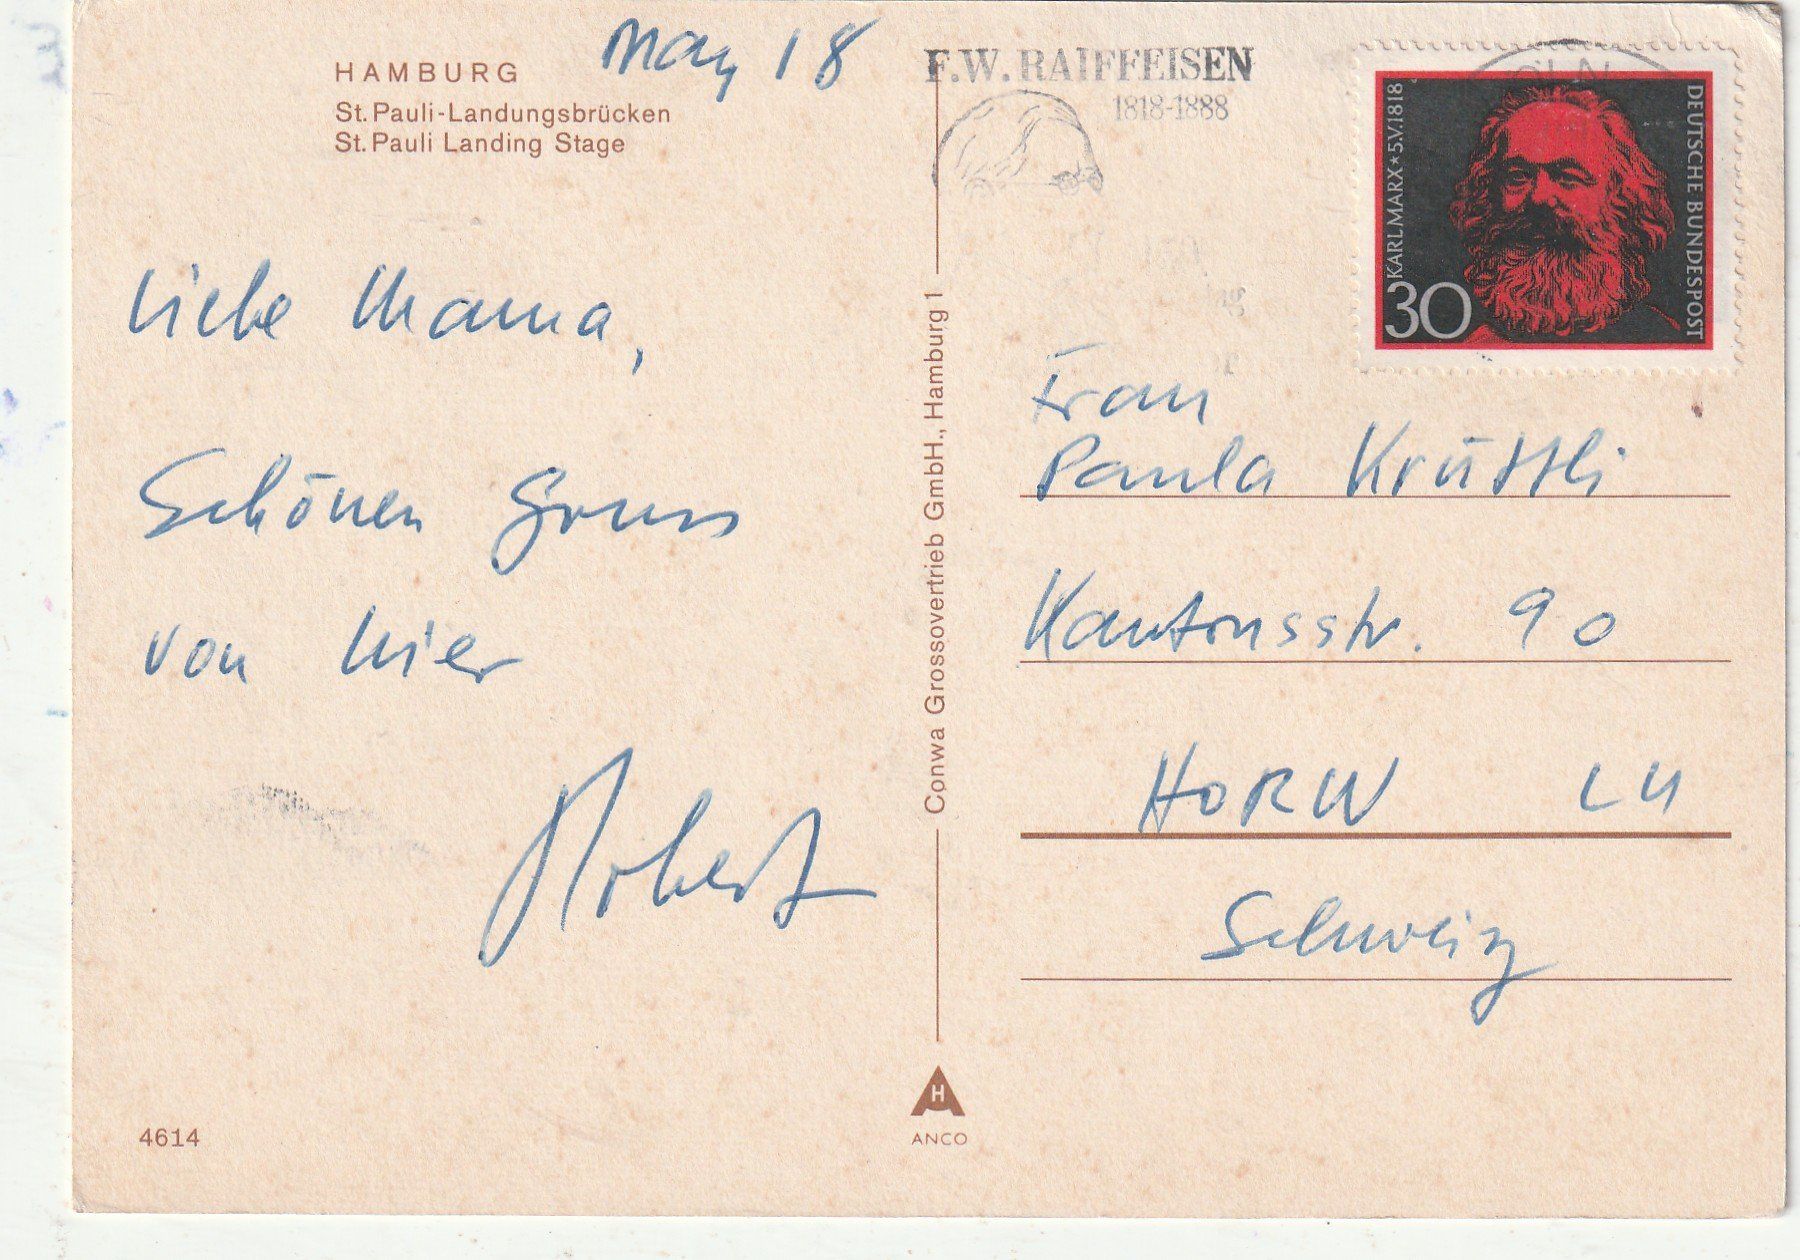 HAMBURG
St. Pauli-Landungsbrücken
St. Pauli Landing Stage
May 18
Liebe Mama,
Schönen Gruss
von hier
Robert
4614
Conwa Grossovertrieb GmbH., Hamburg 1
ANCO
F.W. RAIFFEISEN
1818-1888
KARL MARX ★ 5.V.1818
30
DEUTSCHE BUNDESPOST
Frau
Paula Krüttli
Kantonsstr. 90
HORW LU
Schweiz